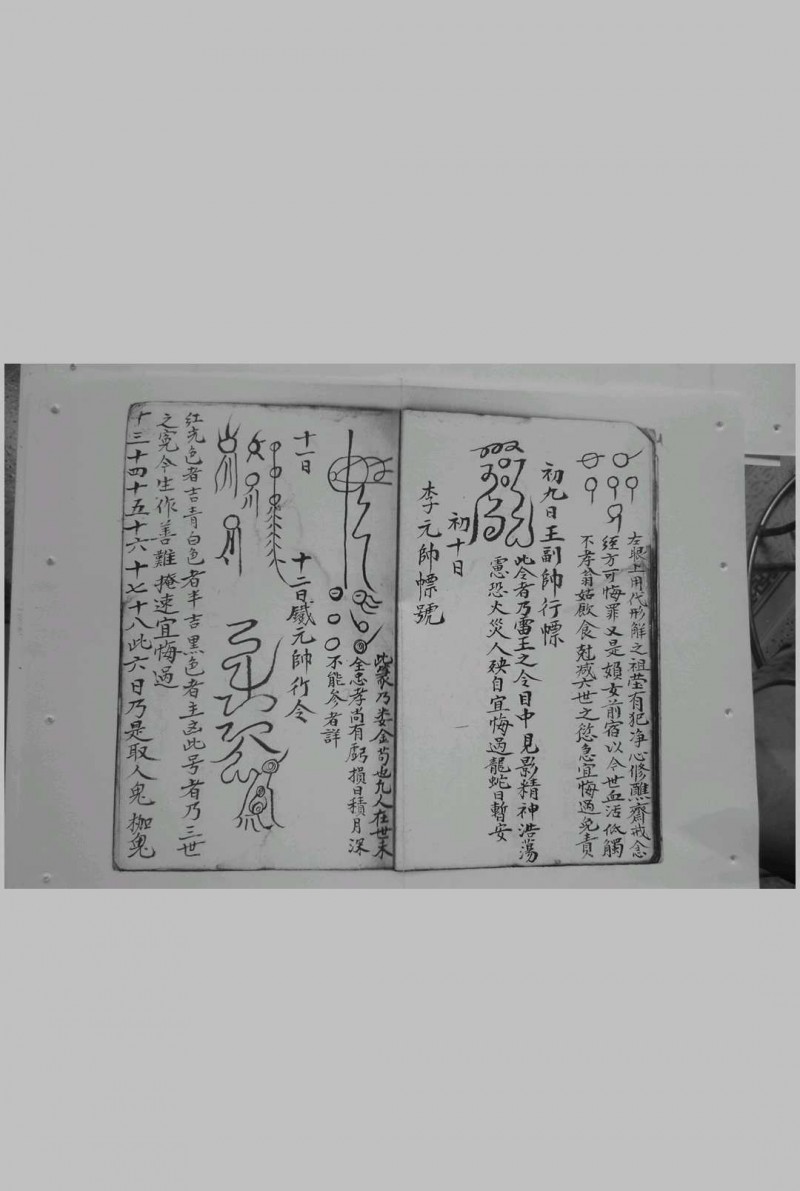 左眼上用代形解之祖茔有犯净心修醮齋戒念
經方可悔罪又是婦女前宿以今世血活低觸
不孝翁姑厭食尅减六世之愆急宜悔過免責
初九日王副帥行幖
此令者乃雷王之令日中見影精神浩蕩
患恐火災人殃自宜悔過龍蛇日暫安
初十日
李元帥幖號
此篆乃娄金苟也九人在世未
全忠孝尚有虧損日積月深
不能参者詳
十一日
十二日鐵元帥行令
紅光色者吉青白色者半吉黑色者主凶此号者乃三世
之冤今生作善難掩速宜悔過
十三十四十五十六十七十八此六日乃是取人鬼枷鬼